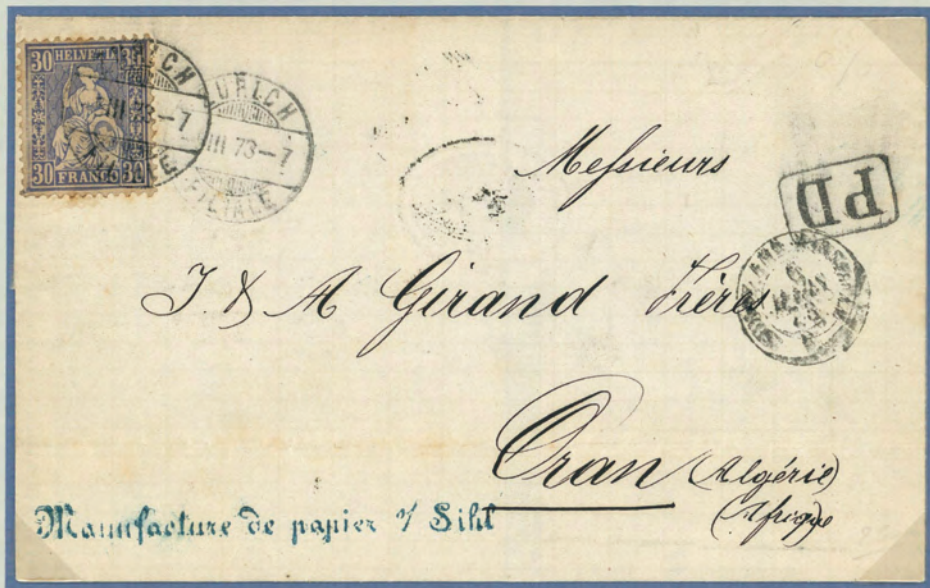 30 HELVETIA 30
30 FRANCO 30
ZURICH
III 73-7
FILIALE
Messieurs
PD
J. & A Girand Frères
Oran (Algérie)
(Afrique)
Manufacture de papier s/ Sihl